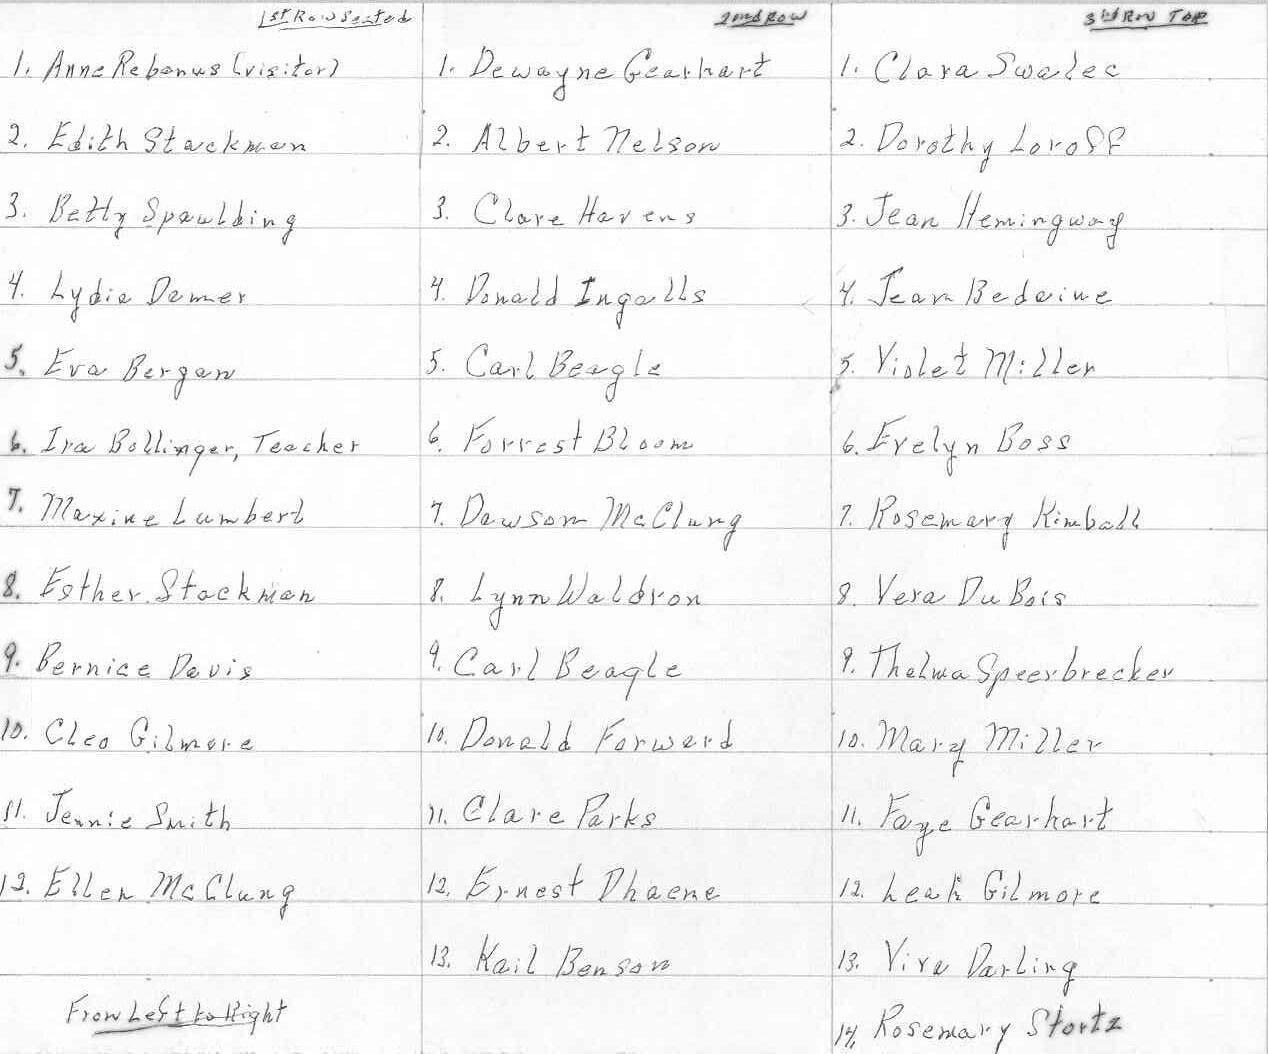 1st Row Seated
1. Anne Rebenus (visitor)
2. Edith Stackman
3. Betty Spaulding
4. Lydia Demer
5. Eva Bergan
6. Ira Bollinger, Teacher
7. Maxine Lumbert
8. Esther Stackman
9. Bernice Davis
10. Cleo Gilmore
11. Jennie Smith
12. Ellen McClung
From Left to Right
2nd Row
1. Dewayne Gearhart
2. Albert Nelson
3. Clare Havens
4. Donald Ingalls
5. Carl Beagle
6. Forrest Bloom
7. Dawson McClung
8. Lynn Waldron
9. Carl Beagle
10. Donald Forward
11. Clare Parks
12. Ernest Dhaene
13. Kail Benson
3rd Row Top
1. Clara Swalec
2. Dorothy Loroff
3. Jean Hemingway
4. Jean Bedaine
5. Violet Miller
6. Evelyn Boss
7. Rosemary Kimball
8. Vera DuBois
9. Thelma Speerbrecker
10. Mary Miller
11. Faye Gearhart
12. Leah Gilmore
13. Viva Darling
14. Rosemary Stortz